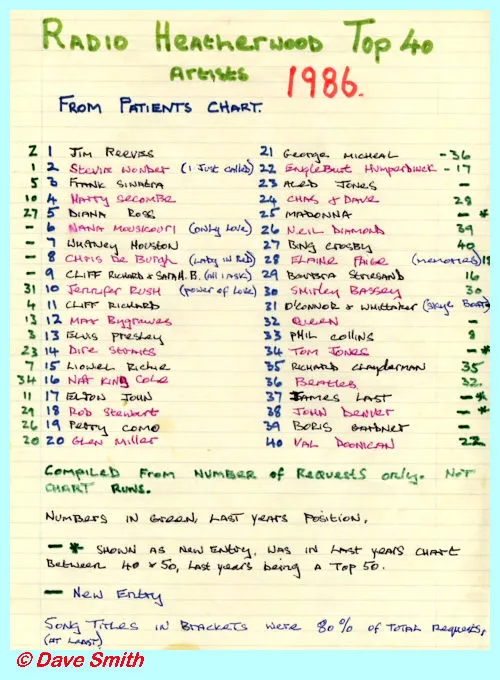 RADIO HEATHERWOOD TOP 40
ARTISTS 1986.
FROM PATIENTS CHART.
2 1 JIM REEVES
1 2 STEVIE WONDER (I JUST CALLED)
5 3 FRANK SINATRA
10 4 HARRY SECOMBE
27 5 DIANA ROSS
- 6 NANA MOUSKOURI (ONLY LOVE)
- 7 WHITNEY HOUSTON
- 8 CHRIS DE BURGH (LADY IN RED)
- 9 CLIFF RICHARD & SARAH. B. (ALL I ASK)
31 10 JENNIFER RUSH (POWER OF LOVE)
4 11 CLIFF RICHARD
13 12 MAX BYGRAVES
3 13 ELVIS PRESLEY
23 14 DIRE STRAITS
7 15 LIONEL RICHIE
34 16 NAT KING COLE
11 17 ELTON JOHN
29 18 ROD STEWART
26 19 PERRY COMO
20 20 GLEN MILLER
21 GEORGE MICHEAL - 36
22 ENGLEBERT HUMPERDINCK - 17
23 ALED JONES -
24 CHAS & DAVE 28
25 MADONNA - *
26 NEIL DIAMOND 39
27 BING CROSBY 40
28 ELAINE PAIGE (MEMORIES) 19
29 BARBRA STREISAND 16
30 SHIRLEY BASSEY 30
31 O'CONNOR & WHITTAKER (SKYE BOAT)
32 QUEEN -
33 PHIL COLLINS 8
34 TOM JONES - *
35 RICHARD CLAYDERMAN 35
36 BEATLES 32
37 JAMES LAST - *
38 JOHN DENVER - *
39 BORIS GARDNER -
40 VAL DOONICAN 22
COMPILED FROM NUMBER OF REQUESTS ONLY. NOT
CHART RUNS.
NUMBERS IN GREEN, LAST YEARS POSITION.
- * SHOWN AS NEW ENTRY. WAS IN LAST YEARS CHART
BETWEEN 40 & 50, LAST YEARS BEING A TOP 50.
- NEW ENTRY
SONG TITLES IN BRACKETS WERE 80% OF TOTAL REQUESTS,
(AT LEAST)
© Dave Smith